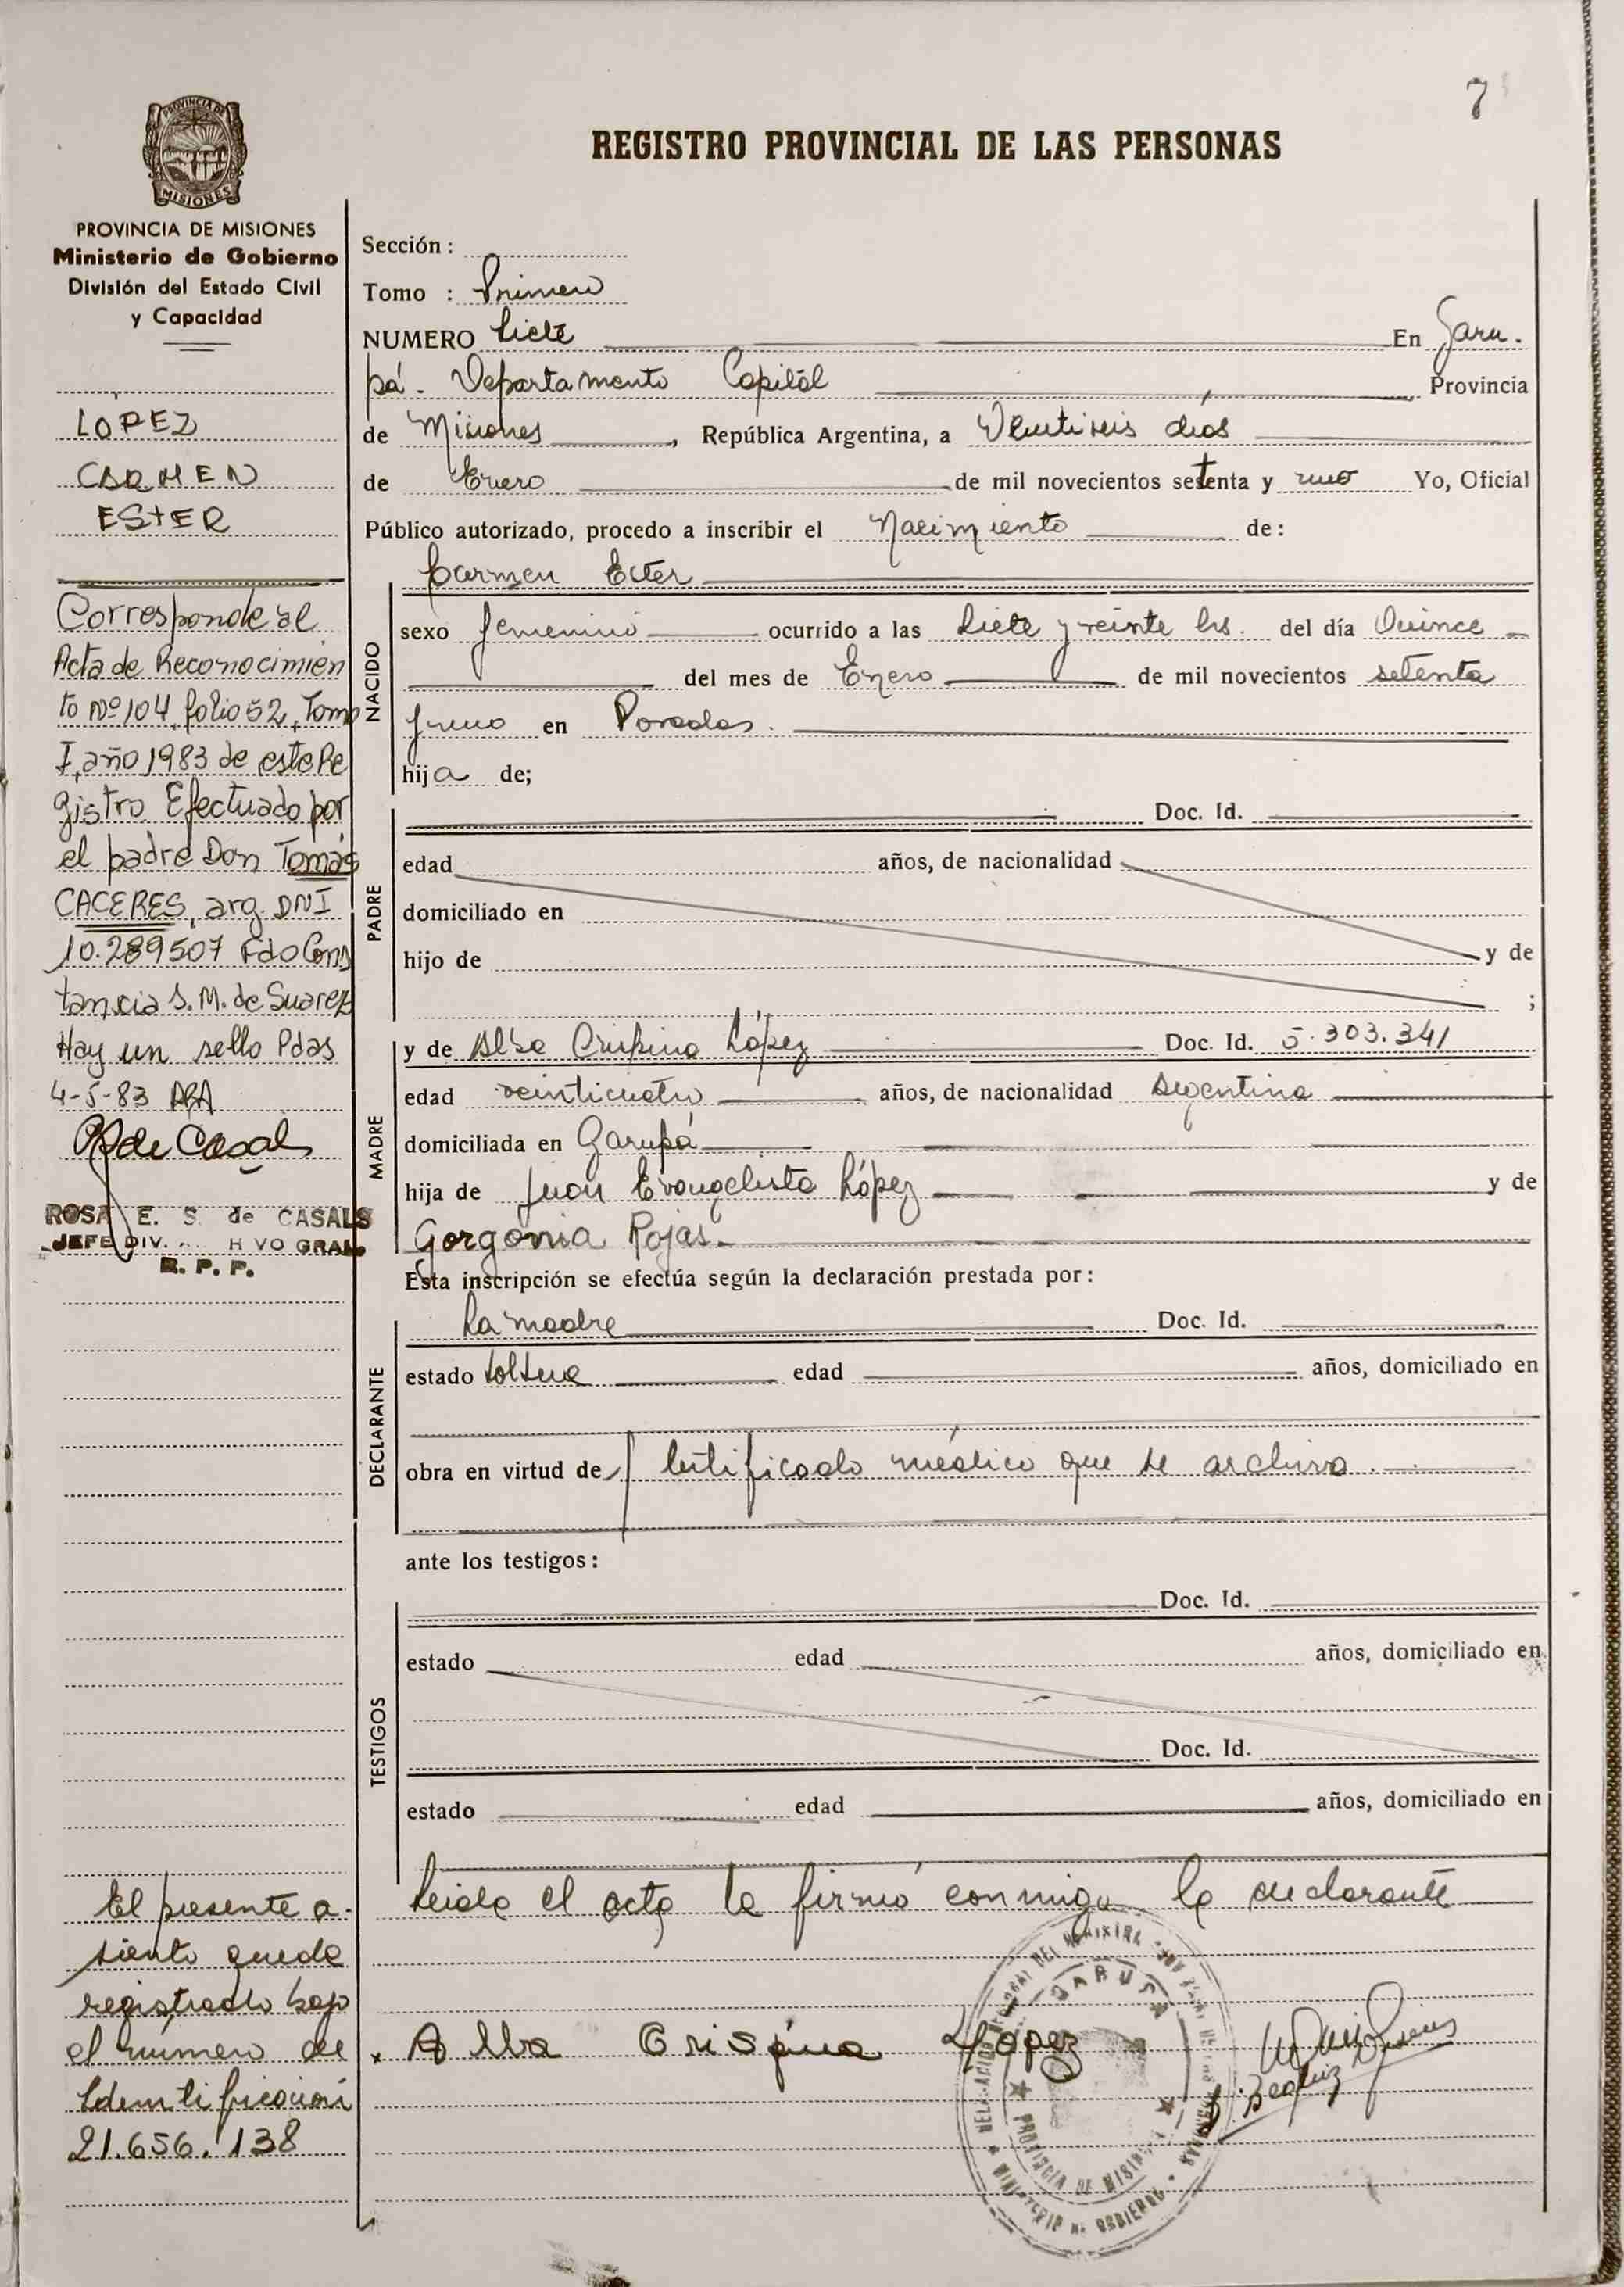 7
PROVINCIA DE
MISIONES
REGISTRO PROVINCIAL DE LAS PERSONAS
PROVINCIA DE MISIONES
Ministerio de Gobierno
División del Estado Civil
y Capacidad
LOPEZ
CARMEN
ESTER
Corresponde al
Acta de Reconocimien
to Nº 104, folio 52, Tomo
I, año 1983 de este Re
gistro Efectuado por
el padre Don Tomás
CACERES, arg. DNI
10.289507 Fdo Cons
tancia S. M. de Suarez
Hay un sello Pdas
4-5-83
R de Casals
ROSA E. S. de CASALS
JEFE DIV. H VO GRAL.
R. P. P.
El presente a-
siento queda
registrado bajo
el número de
Identificación
21.656.138
Sección :
Tomo : Primero
NUMERO Siete En Garu-
pá- Departamento Capital Provincia
de Misiones, República Argentina, a Veintiseis días
de Enero de mil novecientos setenta y uno Yo, Oficial
Público autorizado, procedo a inscribir el Nacimiento de:
Carmen Ester
NACIDO
sexo femenino ocurrido a las Siete y veinte hs. del día Quince
del mes de Enero de mil novecientos setenta
y uno en Posadas.
hija de;
PADRE
Doc. Id.
edad años, de nacionalidad
domiciliado en
hijo de y de
;
MADRE
y de Alba Crispina López Doc. Id. 5.303.341
edad veinticuatro años, de nacionalidad Argentina
domiciliada en Garupá
hija de Juan Evangelista López y de
Gorgonia Rojas.
Esta inscripción se efectúa según la declaración prestada por :
DECLARANTE
La madre Doc. Id.
estado soltera edad años, domiciliado en
obra en virtud de Certificado médico que se archiva.
ante los testigos :
TESTIGOS
Doc. Id.
estado edad años, domiciliado en
Doc. Id.
estado edad años, domiciliado en
Leida el acta la firmó conmigo la declarante
x Alba Crispina Lopez
GARUPA
PROVINCIA DE MISIONES
MINISTERIO DE GOBIERNO